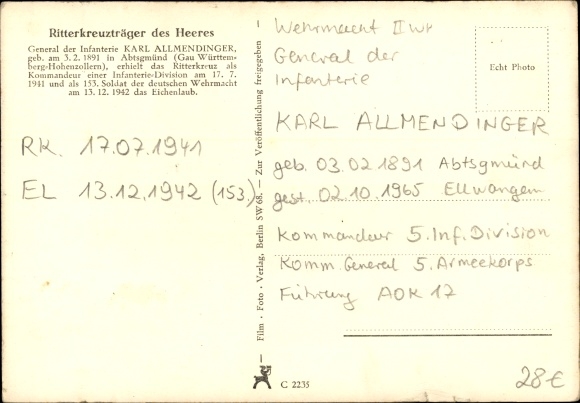 Ritterkreuzträger des Heeres
General der Infanterie KARL ALLMENDINGER,
geb. am 3. 2. 1891 in Abtsgmünd (Gau Württem-
berg-Hohenzollern), erhielt das Ritterkreuz als
Kommandeur einer Infanterie-Division am 17. 7.
1941 und als 153. Soldat der deutschen Wehrmacht
am 13. 12. 1942 das Eichenlaub.
RK. 17.07.1941
EL 13.12.1942 (153.)
— Film - Foto - Verlag, Berlin SW 68. — Zur Veröffentlichung freigegeben —
C 2235
Wehrmacht II WK
General der
Infanterie
Echt Photo
KARL ALLMENDINGER
geb. 03.02 1891 Abtsgmünd
gest. 02.10.1965 Ellwangen
Kommandeur 5. Inf. Division
Komm. General 5. Armeekorps
Führung AOK 17
28€